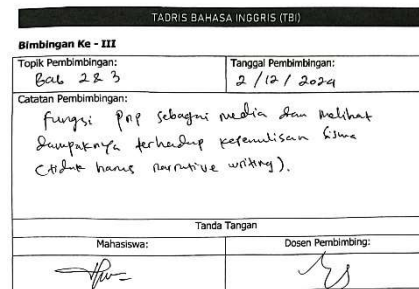 TADRIS BAHASA INGGRIS (TBI)
Bimbingan Ke - III
Topik Pembimbingan:
Bab 2 & 3
Tanggal Pembimbingan:
2 / 12 / 2024
Catatan Pembimbingan:
fungsi PnP sebagai media dan melihat
dampaknya terhadap kepenulisan siswa
(tidak harus narrative writing).
Tanda Tangan
Mahasiswa:
Dosen Pembimbing: